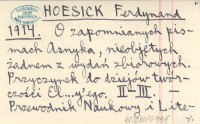 HOESICK Ferdynand
1914. O zapomnianych pis-
mach Asnyka, nieobjętych
żadnem z wydań zbiorowych.
Przyczynek do dziejów twór-
czości El...y'ego. II-III. -
Przewodnik Naukowy i Lite-